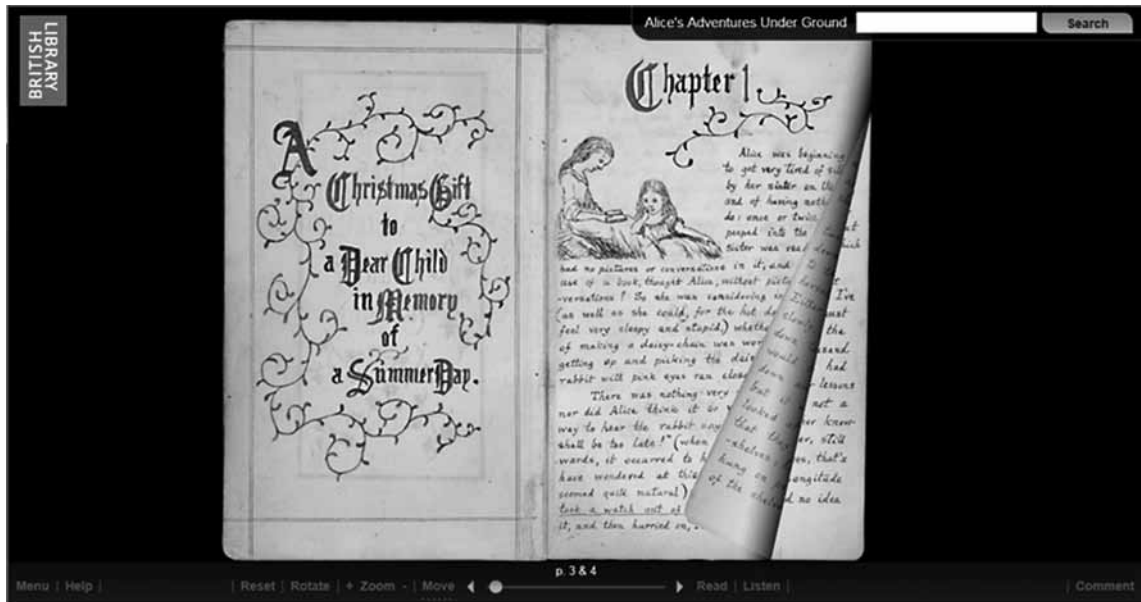 BRITISH
LIBRARY
Alice's Adventures Under Ground
Search
A
Christmas Gift
to
a Dear Child
in Memory
of
a Summer Day.
Chapter 1
Alice was beginning
to get very tired of
by her sister on the
and of having noth
do: once or twice
peeped into the
sister was read which
had no pictures or conversations in it, and
use of a book, thought Alice, without pict
-versations? So she was considering in I've
(as well as she could, for the hot d just
feel very sleepy and stupid,) whethe the
of making a daisy-chain was wor
getting up and picking the dais had
rabbit with pink eyes ran close lessons
There was nothing very not a
nor did Alice think it so know-
way to hear the rabbit say still
shall be too late!" (when
words, it occurred to h that's
have wondered at this ongitude
seemed quite natural) d no idea
took a watch out of
it, and then hurried on,
slowly
down
would
down
but
looked
that the
-shelves
hung on
of the shelves
p. 3 & 4
Menu | Help | | Reset | Rotate | + Zoom - | Move Read | Listen | | Comment